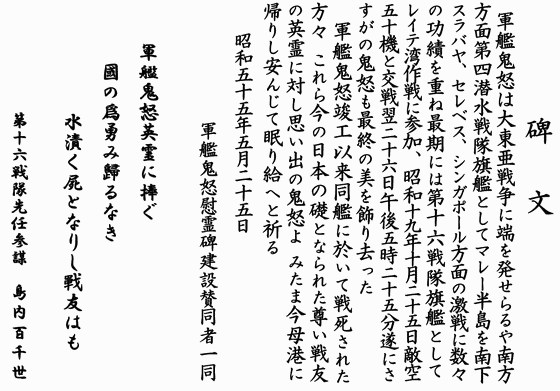 碑文
軍艦鬼怒は大東亜戦争に端を発せらるや南方
方面第四潜水戦隊旗艦としてマレー半島を南下
スラバヤ、セレベス、シンガポール方面の激戦に数々
の功績を重ね最期には第十六戦隊旗艦として
レイテ湾作戦に参加、昭和十九年十月二十五日敵空
五十機と交戦翌二十六日午後五時二十五分遂にさ
すがの鬼怒も最終の美を飾り去った
軍艦鬼怒竣工以来同艦に於いて戦死された
方々 これら今の日本の礎となられた尊い戦友
の英霊に対し思い出の鬼怒よ みたま今母港に
帰りし安んじて眠り給へと祈る
昭和五十五年五月二十五日
軍艦鬼怒慰霊碑建設賛同者一同
軍艦鬼怒英霊に捧ぐ
國の為勇み歸るなき
水漬く屍となりし戦友はも
第十六戦隊先任参謀 島内百千世